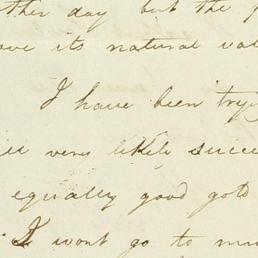 other day but the
ove its natural val
I have been tryi
ill very likely succe
equally good gold
I wont go to mu